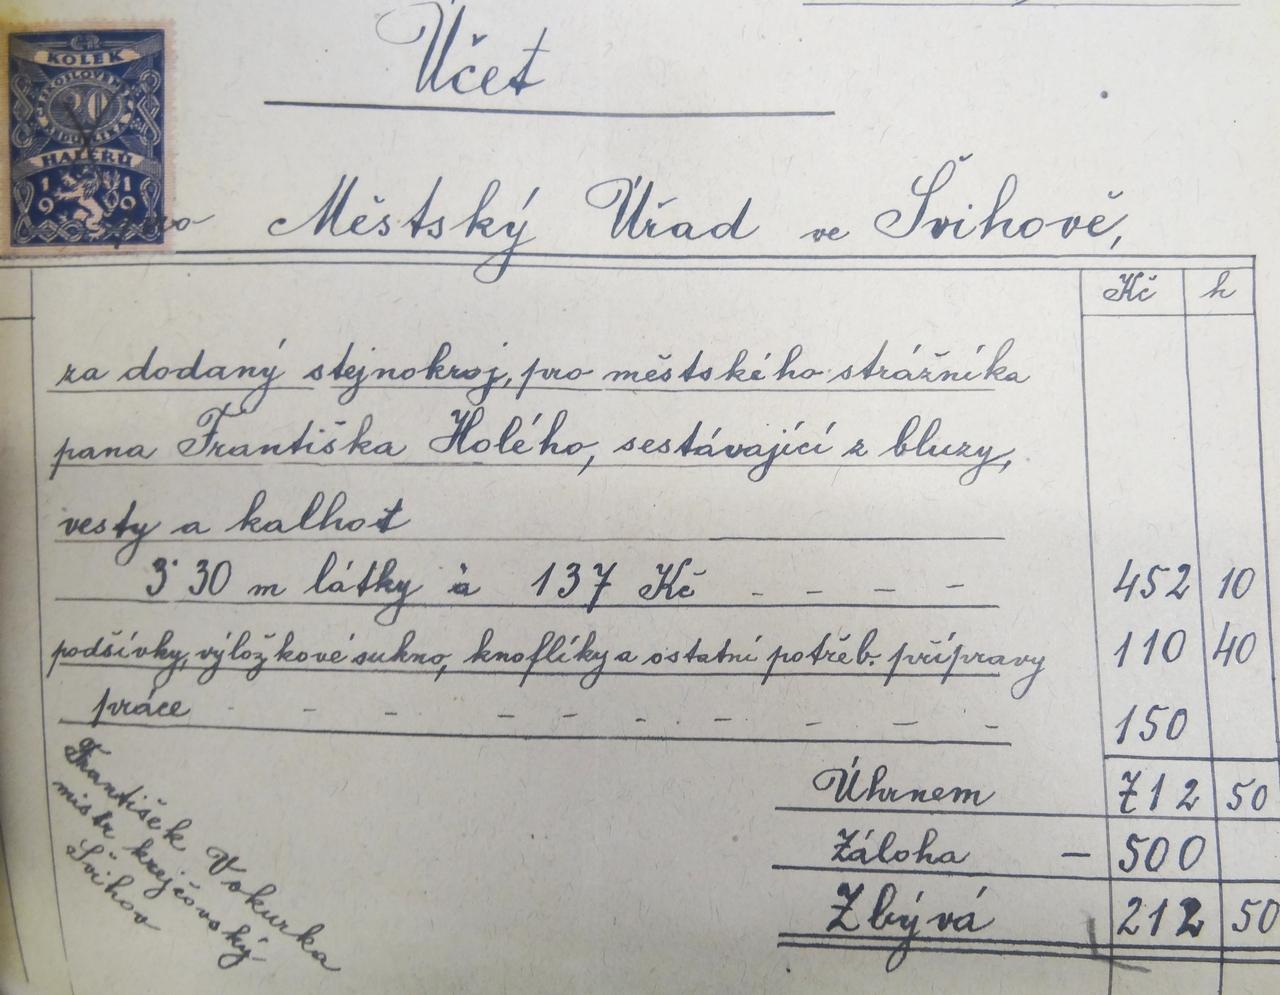 ČR
KOLEK
ČESKOSLOVENSKÁ
20
REPUBLIKA
HALÉŘŮ
1919
Účet
pro Městský Úřad ve Švihově,
Kč h
za dodaný stejnokroj, pro městského strážníka
pana Františka Holého, sestávající z bluzy,
vesty a kalhot
3·30 m látky à 137 Kč - - - - 452 10
podšívky, výložkové sukno, knoflíky a ostatní potřeb. přípravy 110 40
práce - - - - - - - - - - 150
Úhrnem 712 50
Záloha – 500
Zbývá 212 50
František Vokurka
mistr krejčovský
Švihov